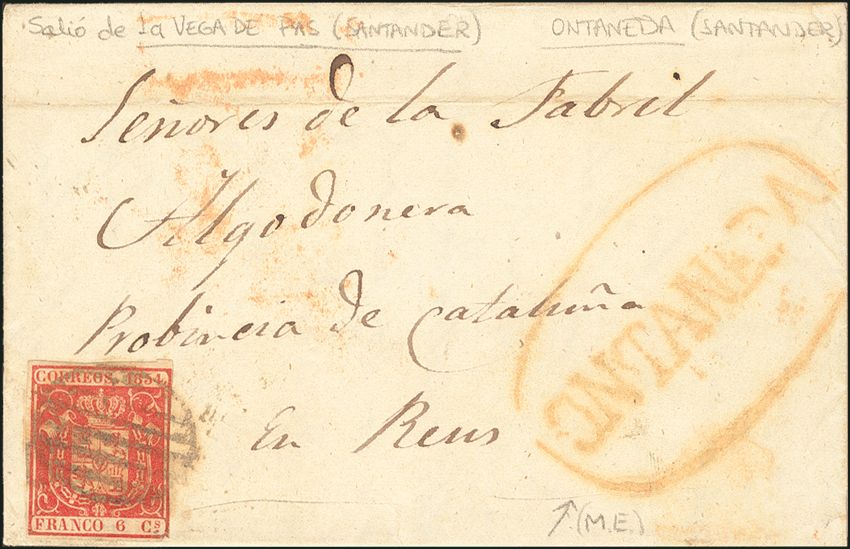 Salió de la VEGA DE PAS (SANTANDER) ONTANEDA (SANTANDER)
Señores de la Fabril
Algodonera
Probincia de Cataluña
En Reus
ONTANEDA
CORREOS. 1854.
FRANCO 6 Cs
(M.E.)